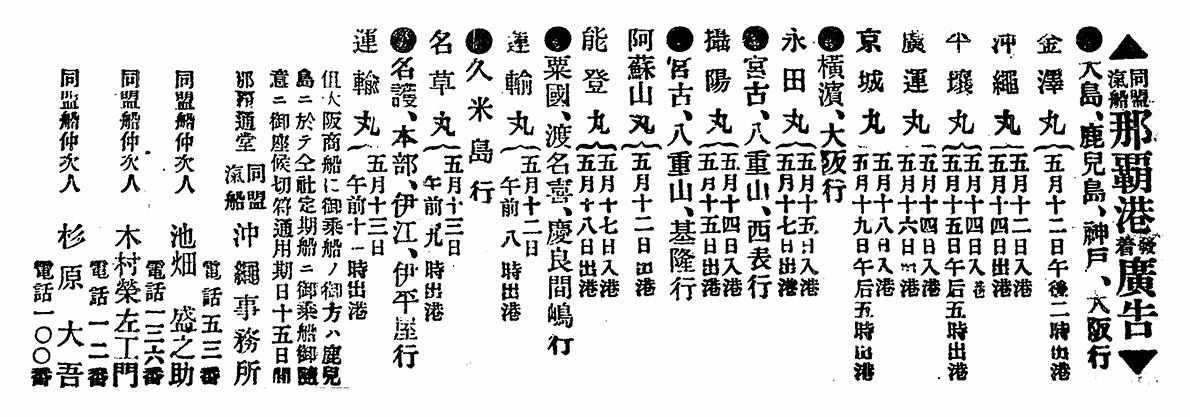 ▲同盟汽船那覇港發着廣告▼
●大島、鹿兒島、神戸、大阪行
金澤丸 五月十二日午後二時出港
沖繩丸 五月十二日入港
五月十四日出港
平壤丸 五月十四日入港
五月十五日午后五時出港
廣運丸 五月十四日入港
五月十六日出港
京城丸 五月十八日入港
五月十九日午后五時出港
●橫濱、大阪行
永田丸 五月十五日入港
五月十七日出港
●宮古、八重山、西表行
攝陽丸 五月十四日入港
五月十五日出港
●宮古、八重山、基隆行
阿蘇山丸 五月十二日出港
能登丸 五月十七日入港
五月十八日出港
●粟國、渡名喜、慶良間嶋行
運輸丸 五月十二日
午前八時出港
●久米島行
名草丸 五月十三日
午前九時出港
●名護、本部、伊江、伊平屋行
運輸丸 五月十三日
午前十一時出港
但大阪商船に御乘船ノ御方ハ鹿兒
島ニ於テ仝社定期船ニ御乘船御隨
意ニ御座候切符通用期日十五日間
那覇通堂 同盟汽船 沖繩事務所
電話五三番
同盟船仲次人 池畑盛之助
電話一三六番
同盟船仲次人 木村榮左工門
電話一二番
同盟船仲次人 杉原大吾
電話一〇〇番